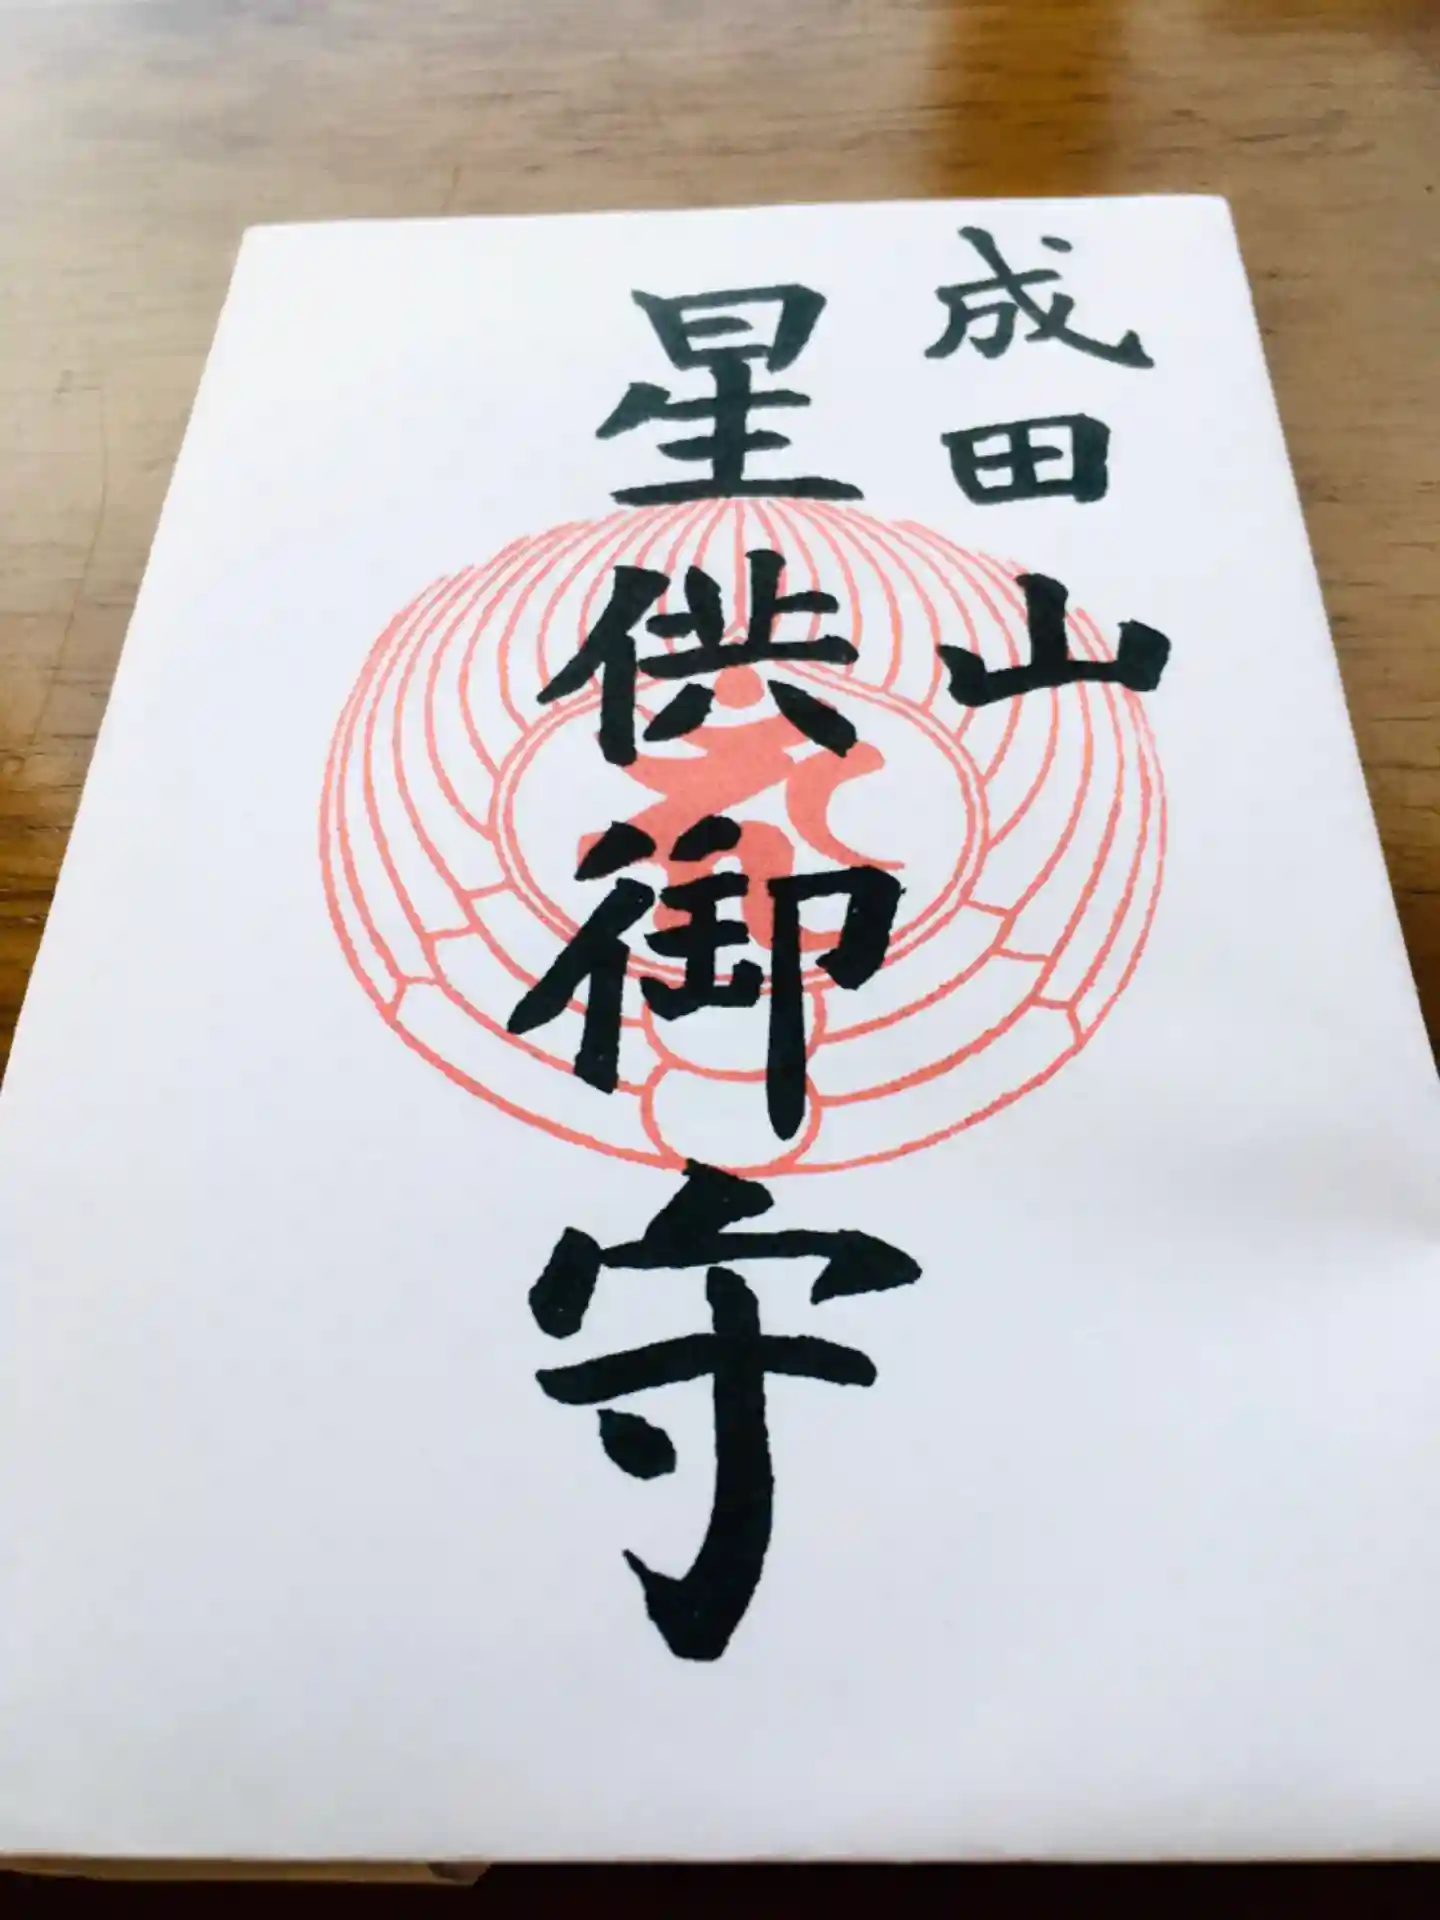 成田山
星供御守